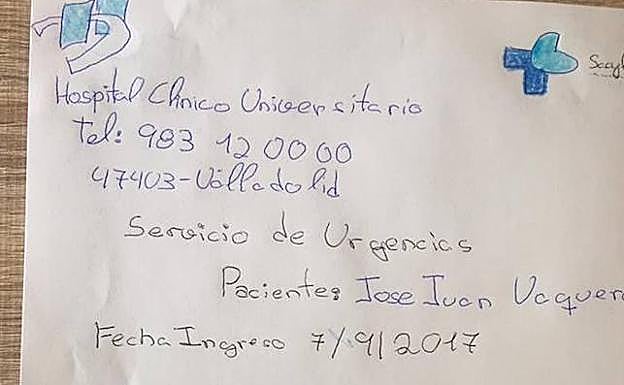 Sacyl
Hospital Clinico Universitario
Tel: 983 12 00 00
47403-Valladolid
Servicio de Urgencias
Paciente: Jose Juan Vaquer
Fecha Ingreso 7/9/2017